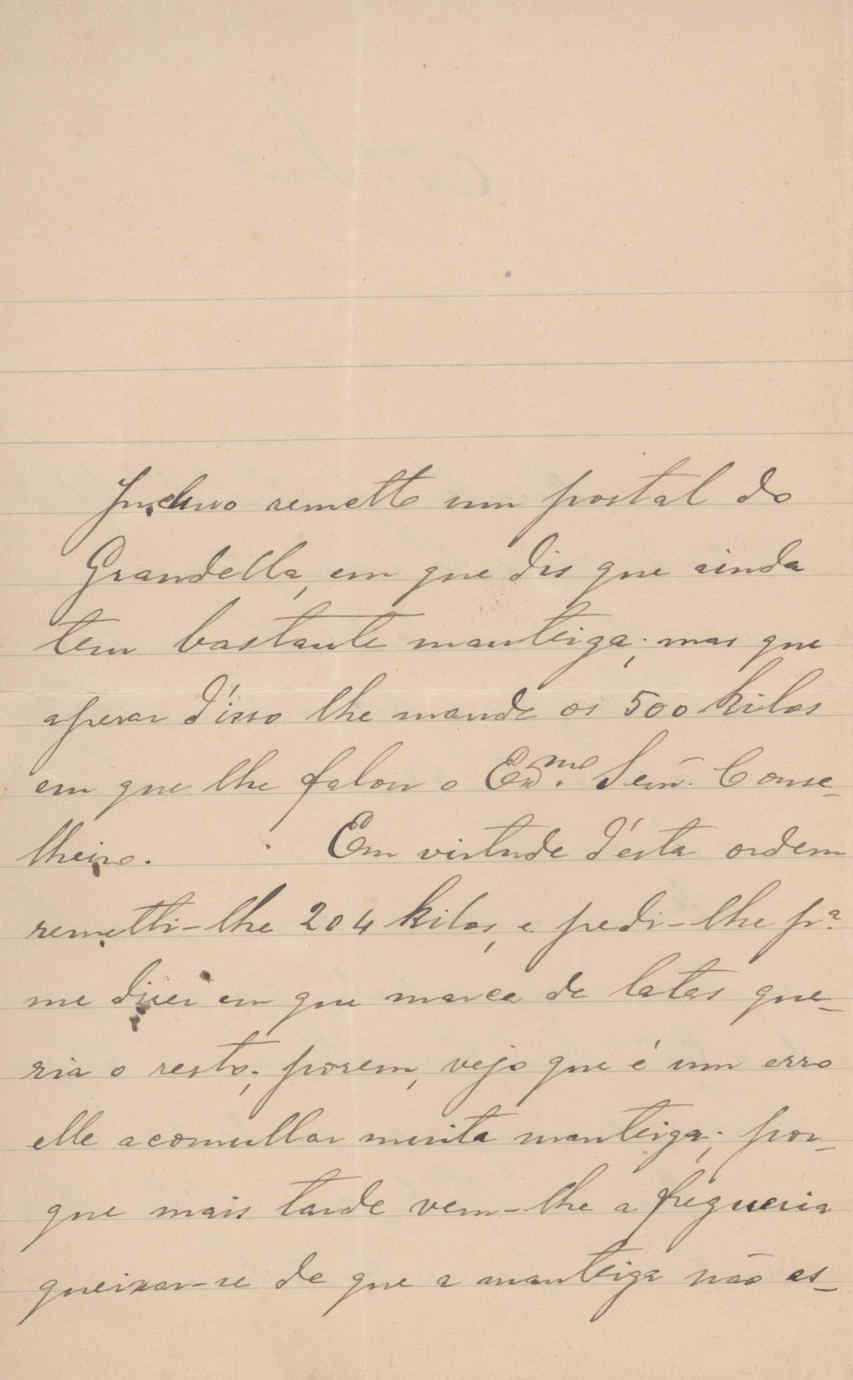 Incluso remetto um postal do
Grandella, em que dis que ainda
tem bastante manteiga; mas que
apesar d'isso lhe mande os 500 kilos
em que lhe falou o Exmo. Senr. Conse-
lheiro. Em virtude d'esta ordem
remetti-lhe 204 kilos, e pedi-lhe pa.
me dizer em que marca de latas que-
ria o resto; porem, vejo que é um erro
elle acomullar muita manteiga; por-
que mais tarde vem-lhe a freguezia
queixar-se de que a manteiga não es-